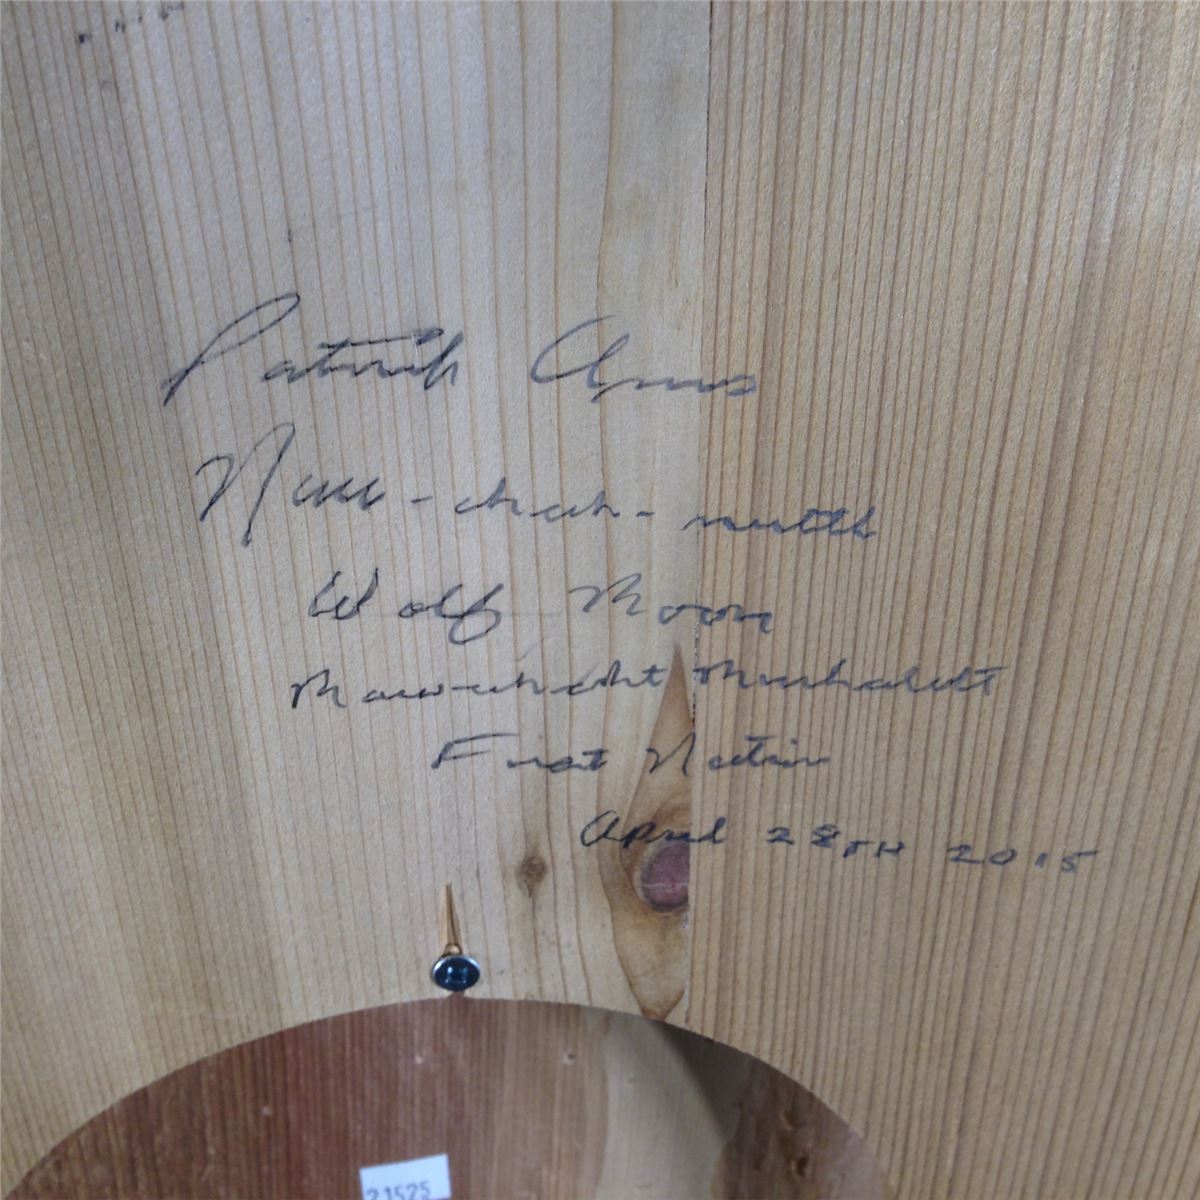 Patrick Amos
Nuu-chah-nulth
Wolf Moon
Mowachaht Muchalaht
First Nation
April 28TH 2015
21525